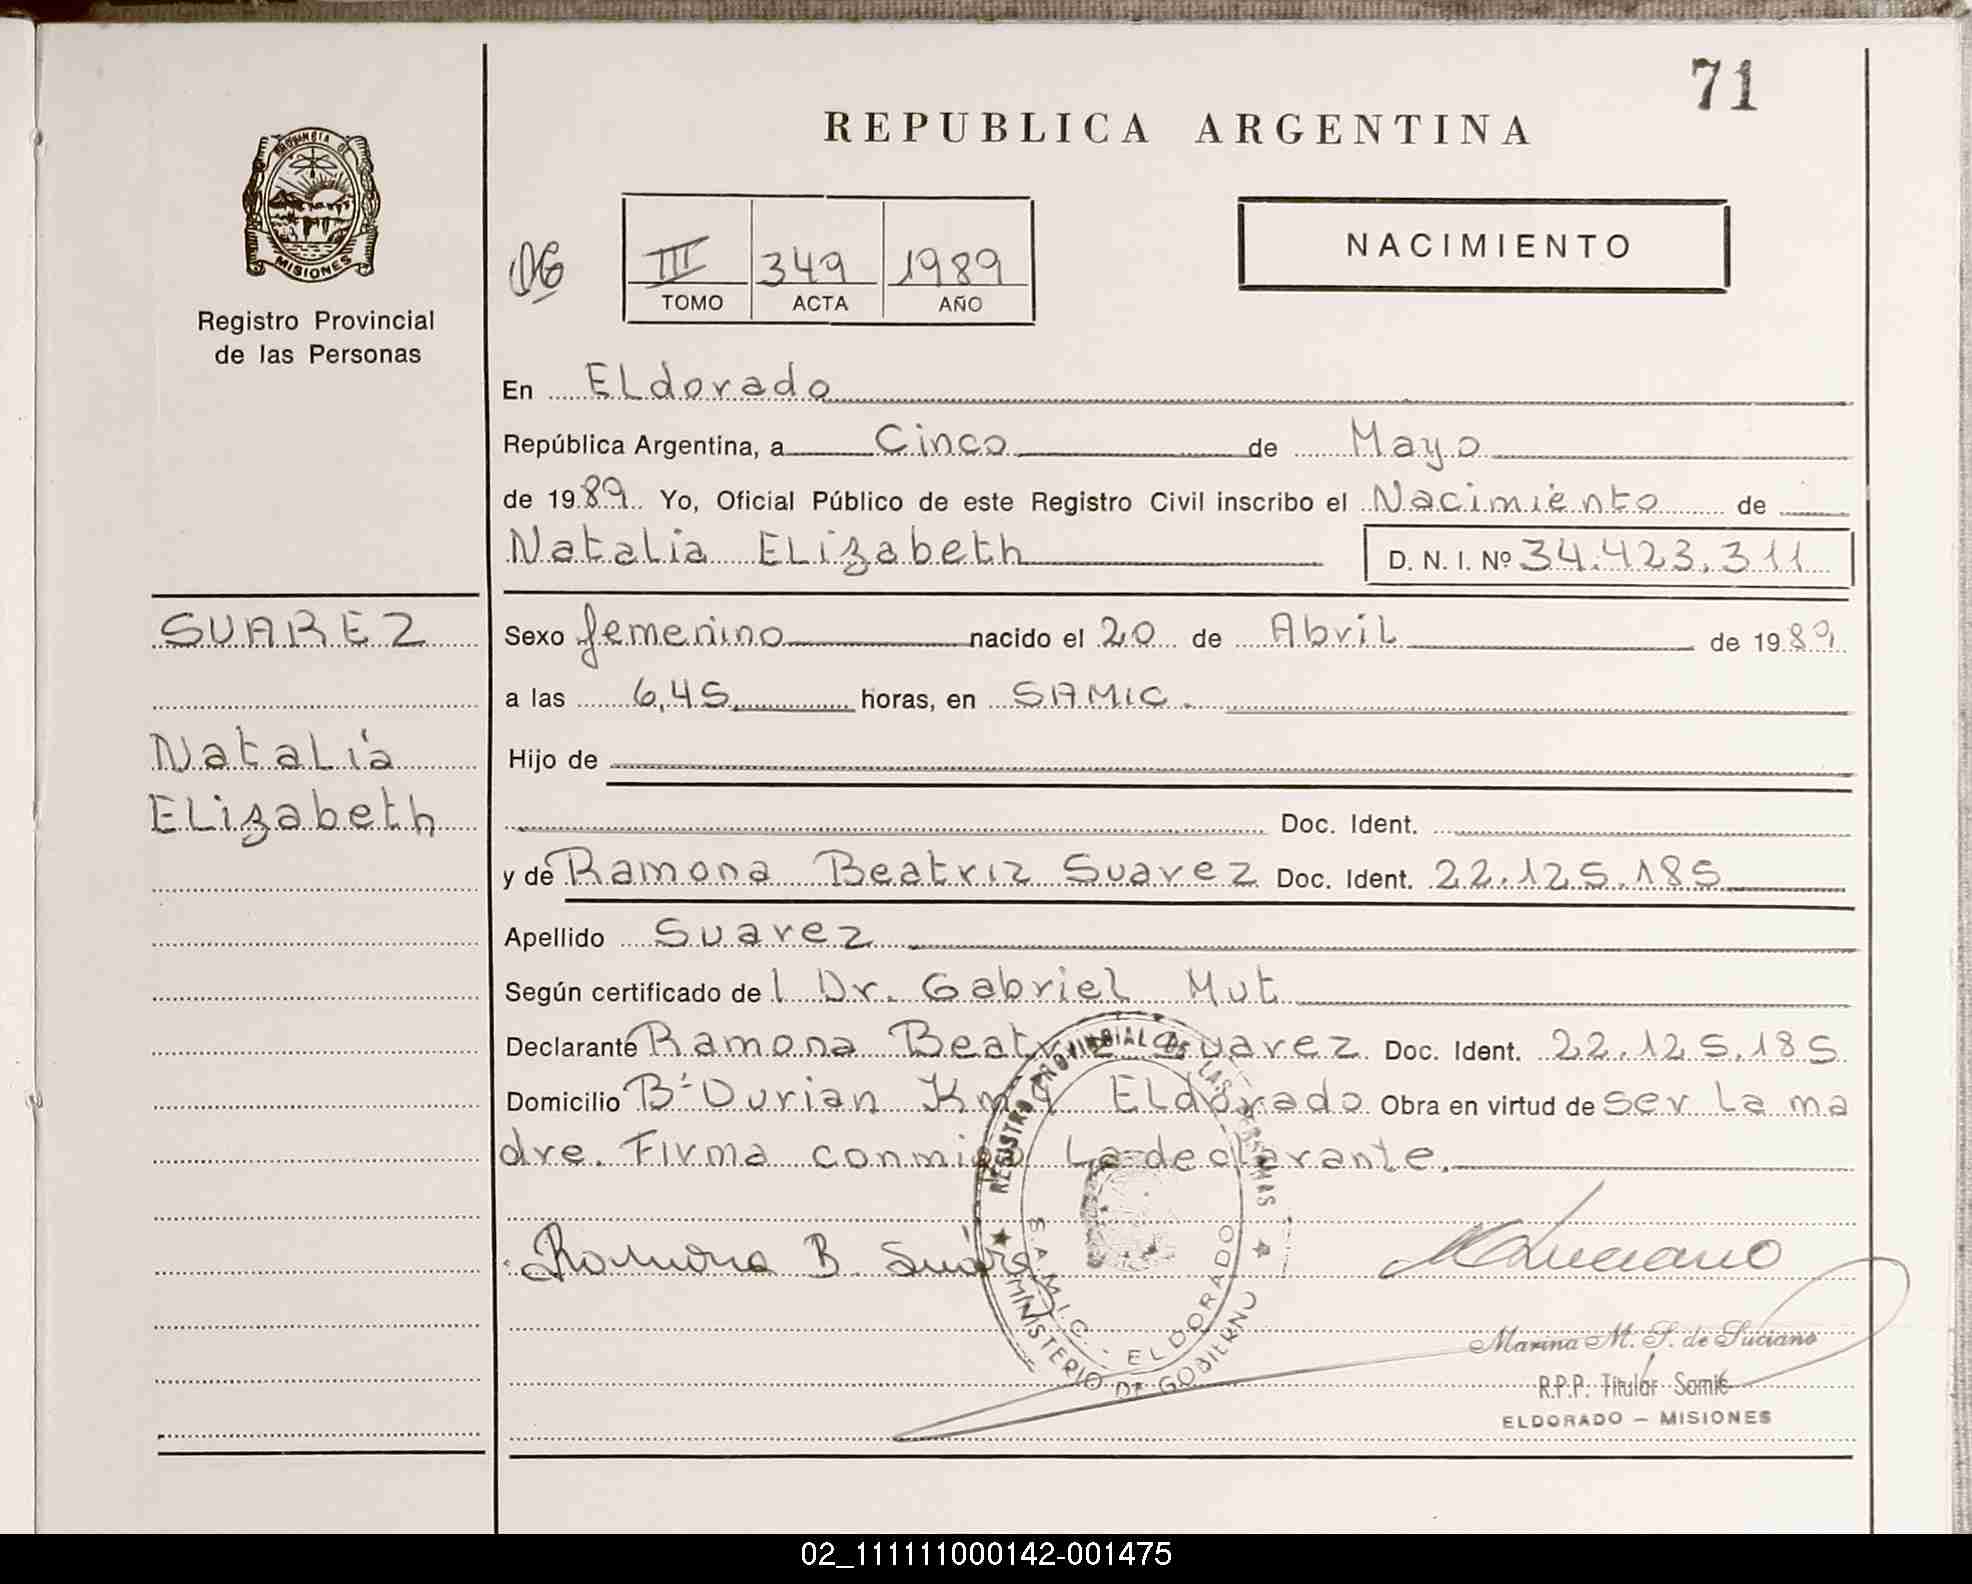 71
REPUBLICA ARGENTINA
PROVINCIA DE
MISIONES
Registro Provincial
de las Personas
III 349 1989
TOMO ACTA AÑO
NACIMIENTO
En ELdorado
República Argentina, a Cinco de Mayo
de 1989 Yo, Oficial Público de este Registro Civil inscribo el Nacimiento de
Natalia ELizabeth D. N. I. Nº 34.423.311
SUAREZ
Sexo femenino nacido el 20 de Abril de 1989
a las 6,45 horas, en SAMIC.
Natalia
ELizabeth
Hijo de
Doc. Ident.
y de Ramona Beatriz Suarez Doc. Ident. 22.125.185
Apellido Suarez
Según certificado del Dr. Gabriel Mut
Declarante Ramona Beatriz Suarez Doc. Ident. 22.125.185
Domicilio Bº Durian Km 9 ELdorado Obra en virtud de ser La ma
dre. Firma conmigo La declarante.
REGISTRO PROVINCIAL DE LAS PERSONAS
S.A.M.I.C. - ELDORADO
MINISTERIO DE GOBIERNO
Ramona B. Suárez
Luciano
Marina M. S. de Luciano
R.P.P. Titular Samic
ELDORADO – MISIONES
02_111111000142-001475